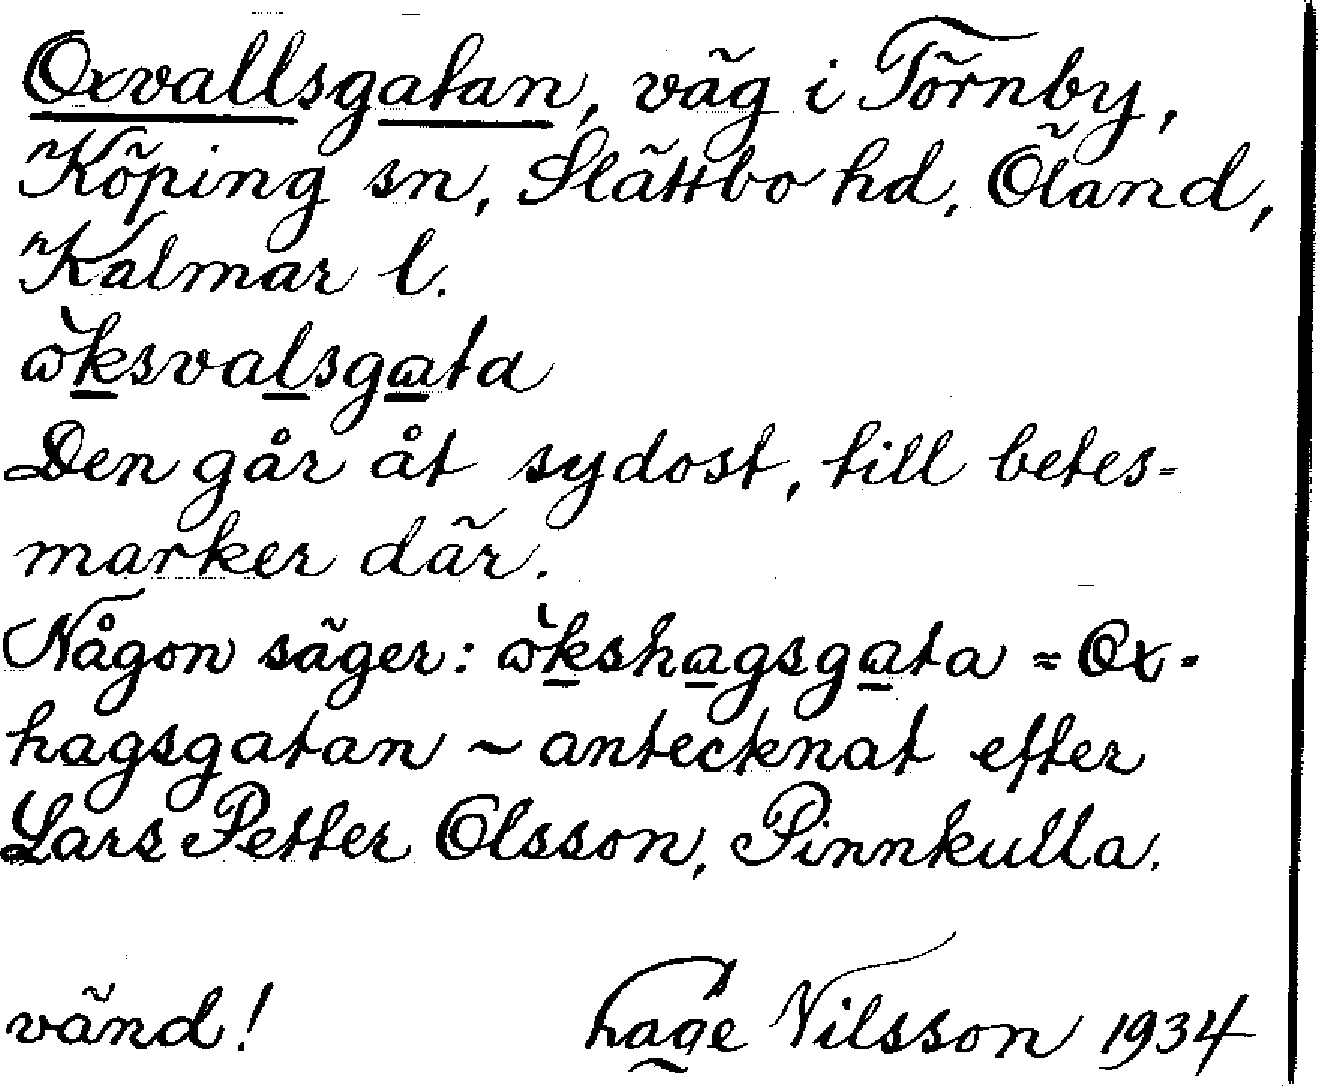 Oxvallsgatan, väg i Törnby,
Köping sn, Slättbo hd, Öland,
Kalmar l.
ὼksvalsgata
Den går åt sydost, till betes-
marker där.
Någon säger: ὼkshagsgata = Ox-
hagsgatan ~ antecknat efter
Lars Petter Olsson, Pinnkulla.
vänd! hage Nilsson 1934